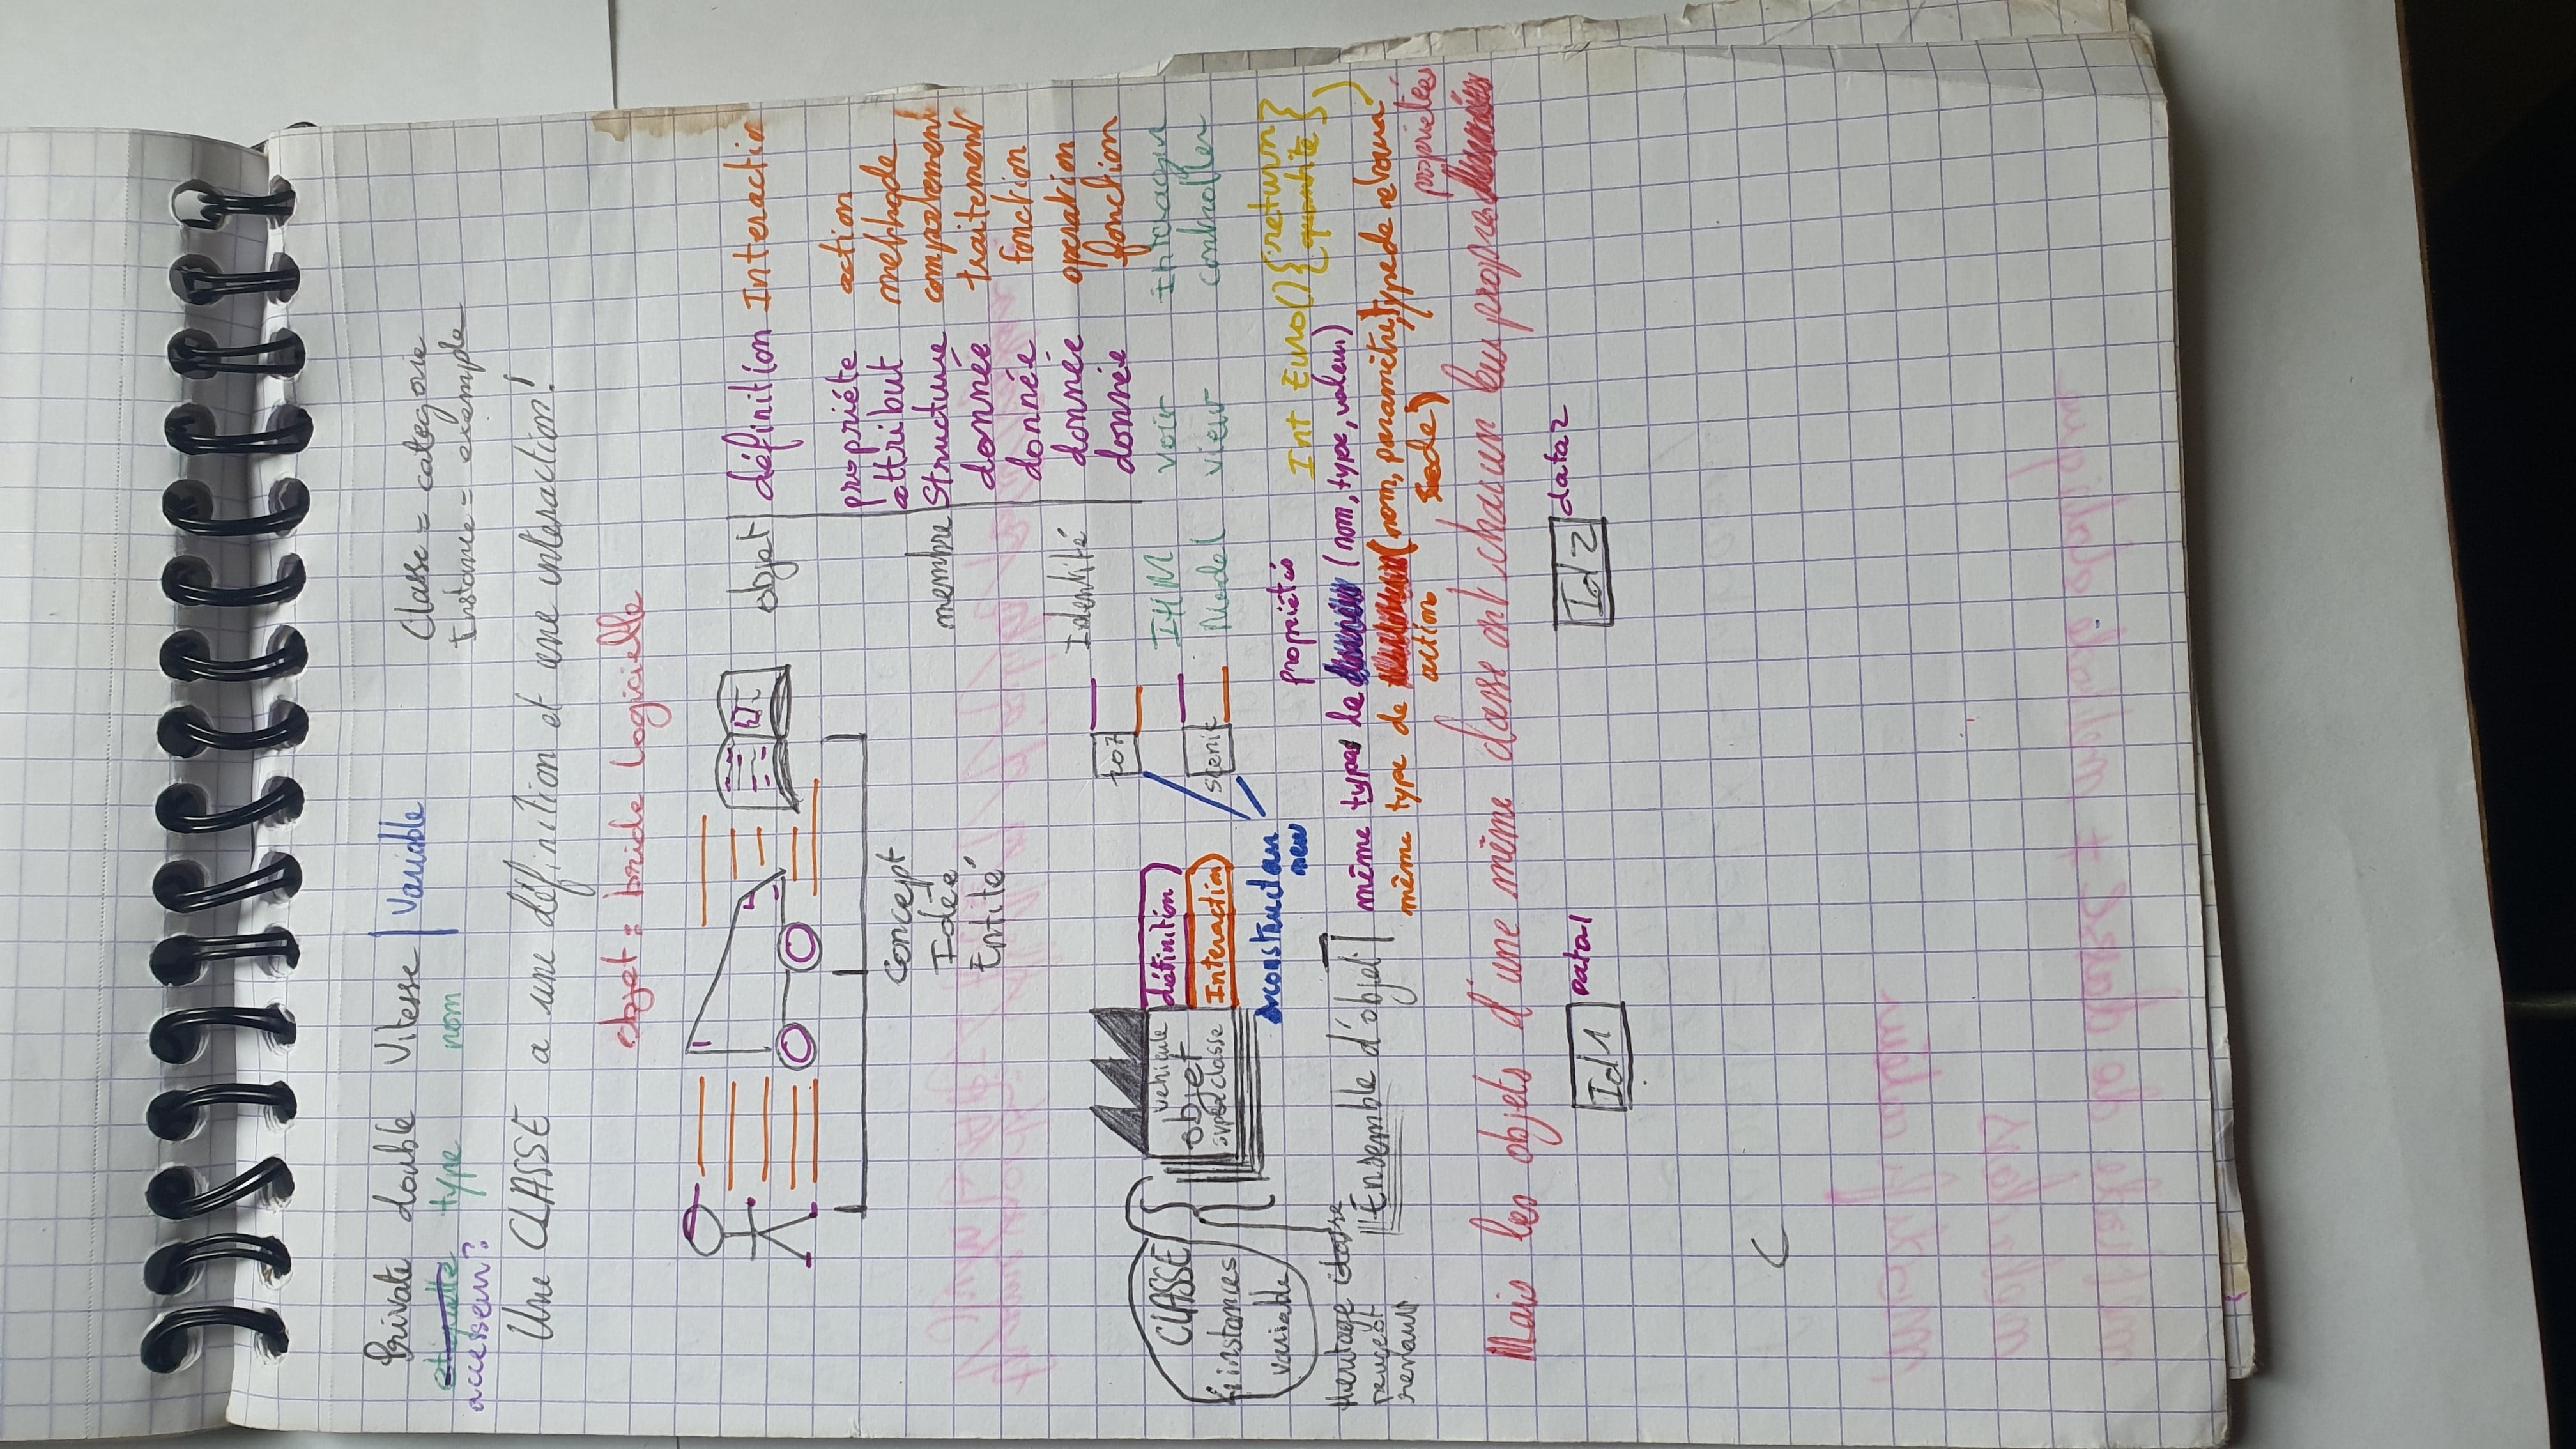 Private double Vitesse | Variable
etiquette type nom
accesseur?
Classe = categorie
Instance = exemple
Une CLASSE a une définition et une interaction!
objet = bride logicielle
Concept
Idée
Entité
objet définition Interactio
propriéte action
attribut methode
membre Structure comportement
donnée traitement
donnée fonction
Identité donnée operation
donnée fonction
IHM voir
Model view controller
CLASSE
instances
variable
vehicule
objet
superclasse
définition
Interaction
207
scenic
constructeur
new
Heritage classe
peugeot
renault
Ensemble d'objet
propriétés
Int Euro() { return
quantité }
même types de (nom, type, valeur)
même type de (nom, paramètre, type de retour
action code)
propriétées
Mais les objets d'une même classe ont chacun leur propres
Id 1 Data1
Id 2 data2
C